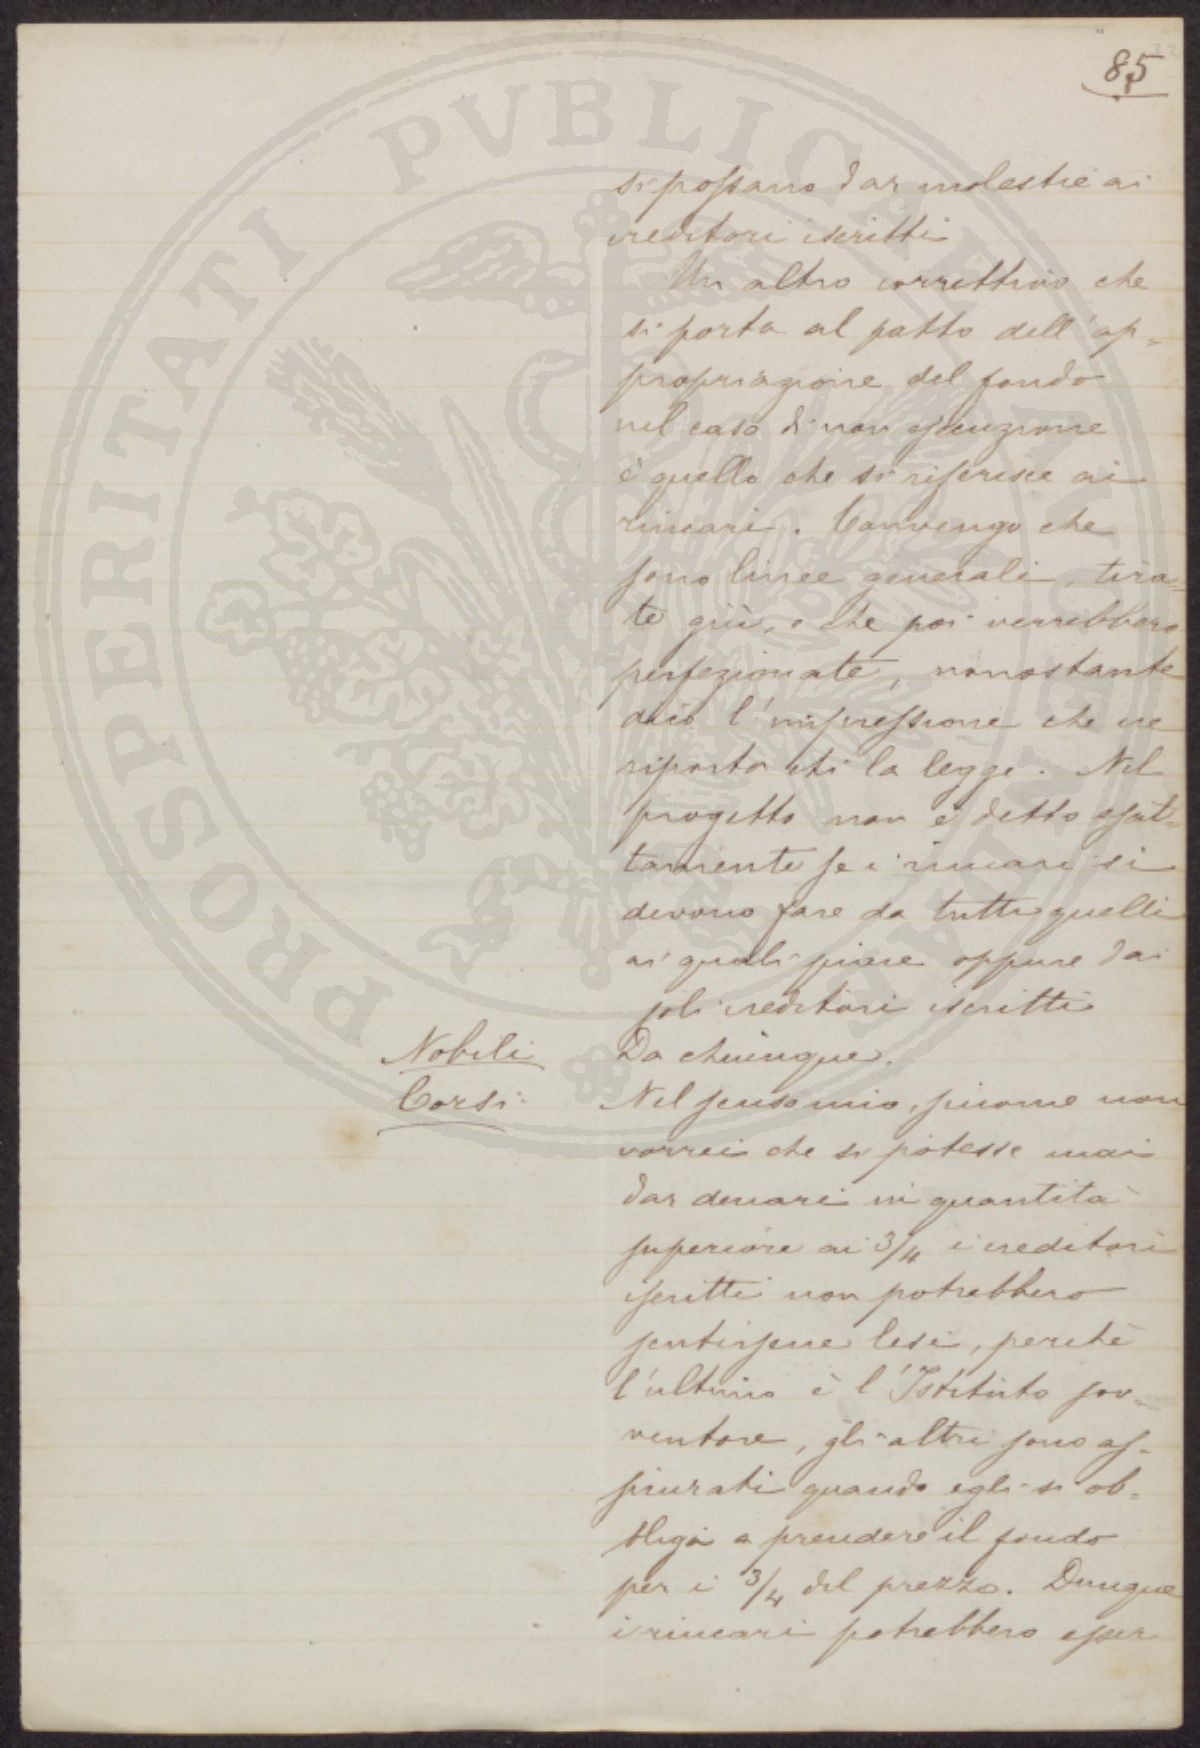 85
si possano dar molestie ai
creditori iscritti
Un altro correttivo che
si porta al patto dell'ap-
propriazione del fondo
nel caso di non esecuzione
è quello che si riferisce ai
rincari. Convengo che
sono linee generali, tira-
te giù, e che poi verrebbero
perfezionate, nonostante
dico l'impressione che ne
riporta la legge. Nel
progetto non è detto esat-
tamente se i rincari si
devono fare da tutti quelli
ai quali piace oppure dai
soli creditori iscritti
Nobili Da chiunque.
Corsi Nel senso mio, siccome non
vorrei che si potesse mai
dar denari in quantità
superiore ai 3/4 i creditori
iscritti non potrebbero
sentirsene lesi, perchè
l'ultimo è l'Istituto sov-
ventore, gli altri sono as-
sicurati quando egli si ob-
bliga a prendere il fondo
per i 3/4 del prezzo. Dunque
i rincari potrebbero esser
PROSPERITATI PVBLICAE